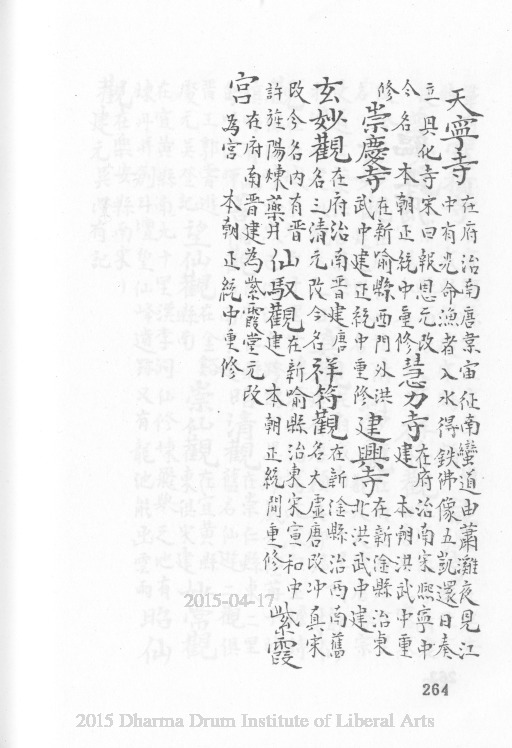 天寧寺在府治南唐裴宙征南蠻道由蕭灘夜見江
中有光命漁者入水得鉄佛像五凱還日奏
立興化寺宋曰報恩元改
今名 本朝正統中重修慧力寺在府治南宋熙寧中
建 本朝洪武中重
修崇慶寺在新喻縣西門外洪
武中建正統中重修建興寺在新淦縣治東
北洪武中建
玄妙觀在府治南晋建唐
名三清元改今名祥符觀在新淦縣治西南舊
名大虛唐改冲真宋
改今名内有晋
許旌陽煉藥井仙馭觀在新喻縣治東宋宣和中
建 本朝正統間重修紫霞
宮在府南晋建為紫霞堂元改
為宮 本朝正統中重修
2015-04-17
264
2015 Dharma Drum Institute of Liberal Arts